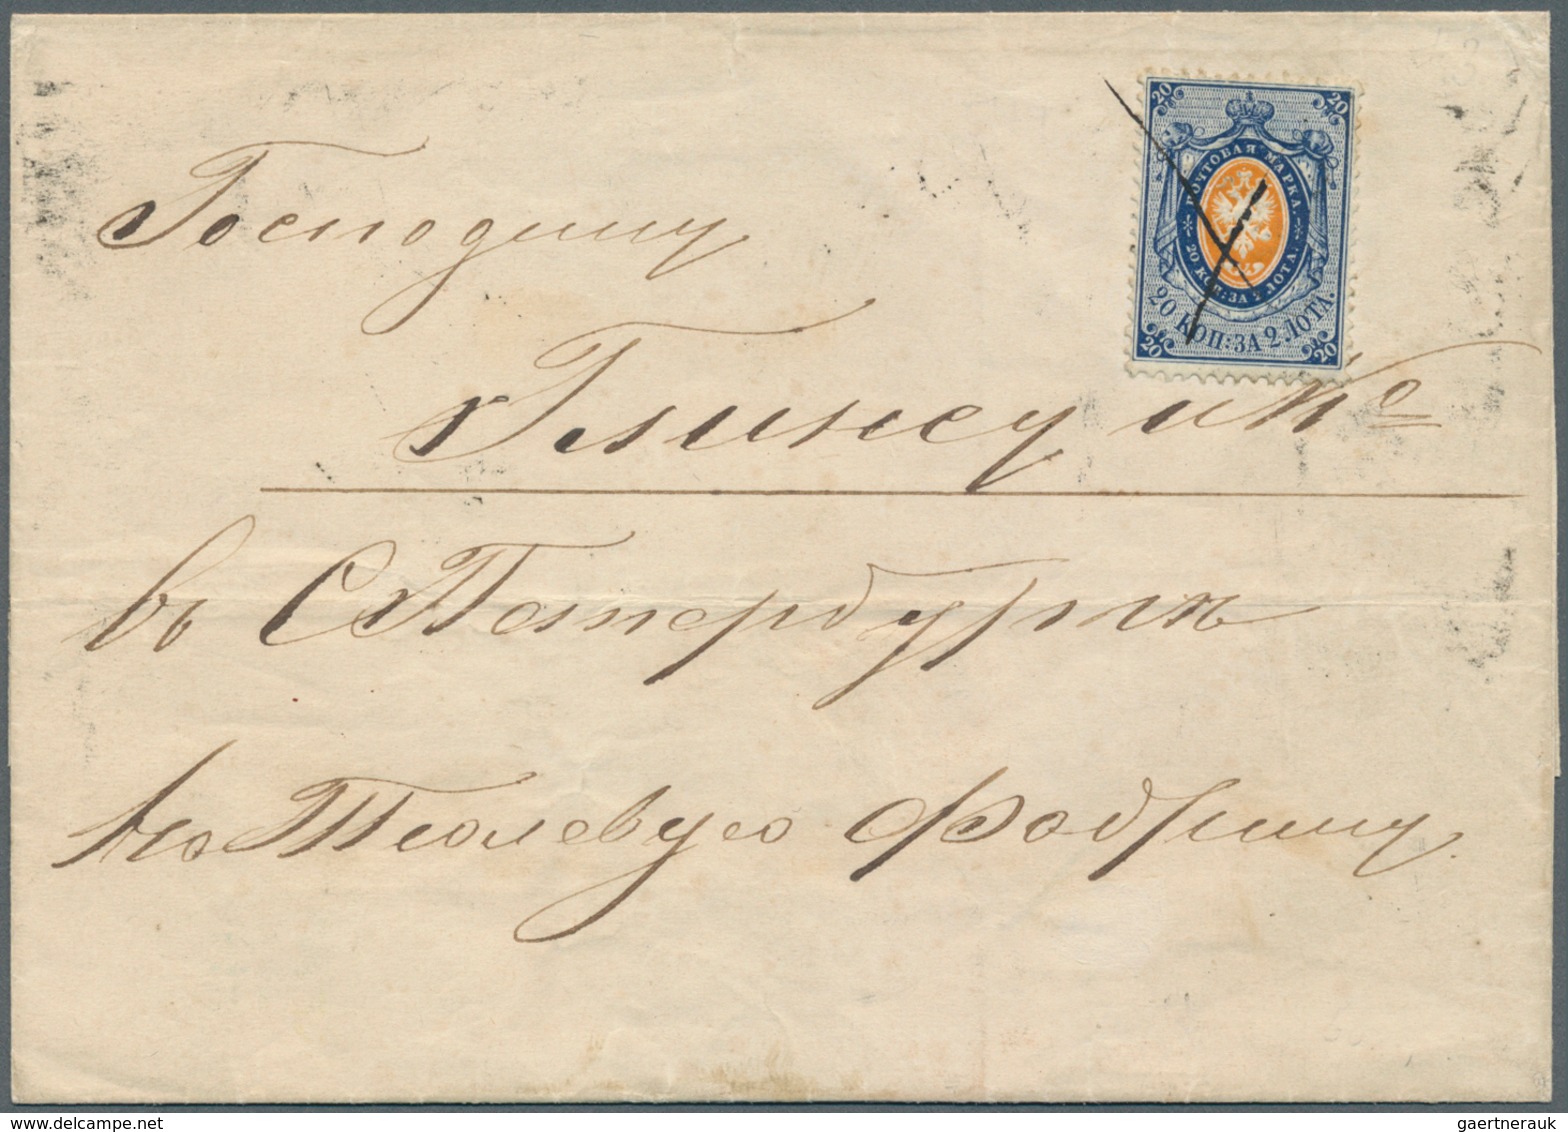 20 20
ПОЧТОВАЯ МАРКА.
20 КОП: ЗА 2. ЛОТА.
20 20
Господину
Глинсу и Кº
въ С Петербургѣ
на Тюлевую Фабрику
gaertnerauk